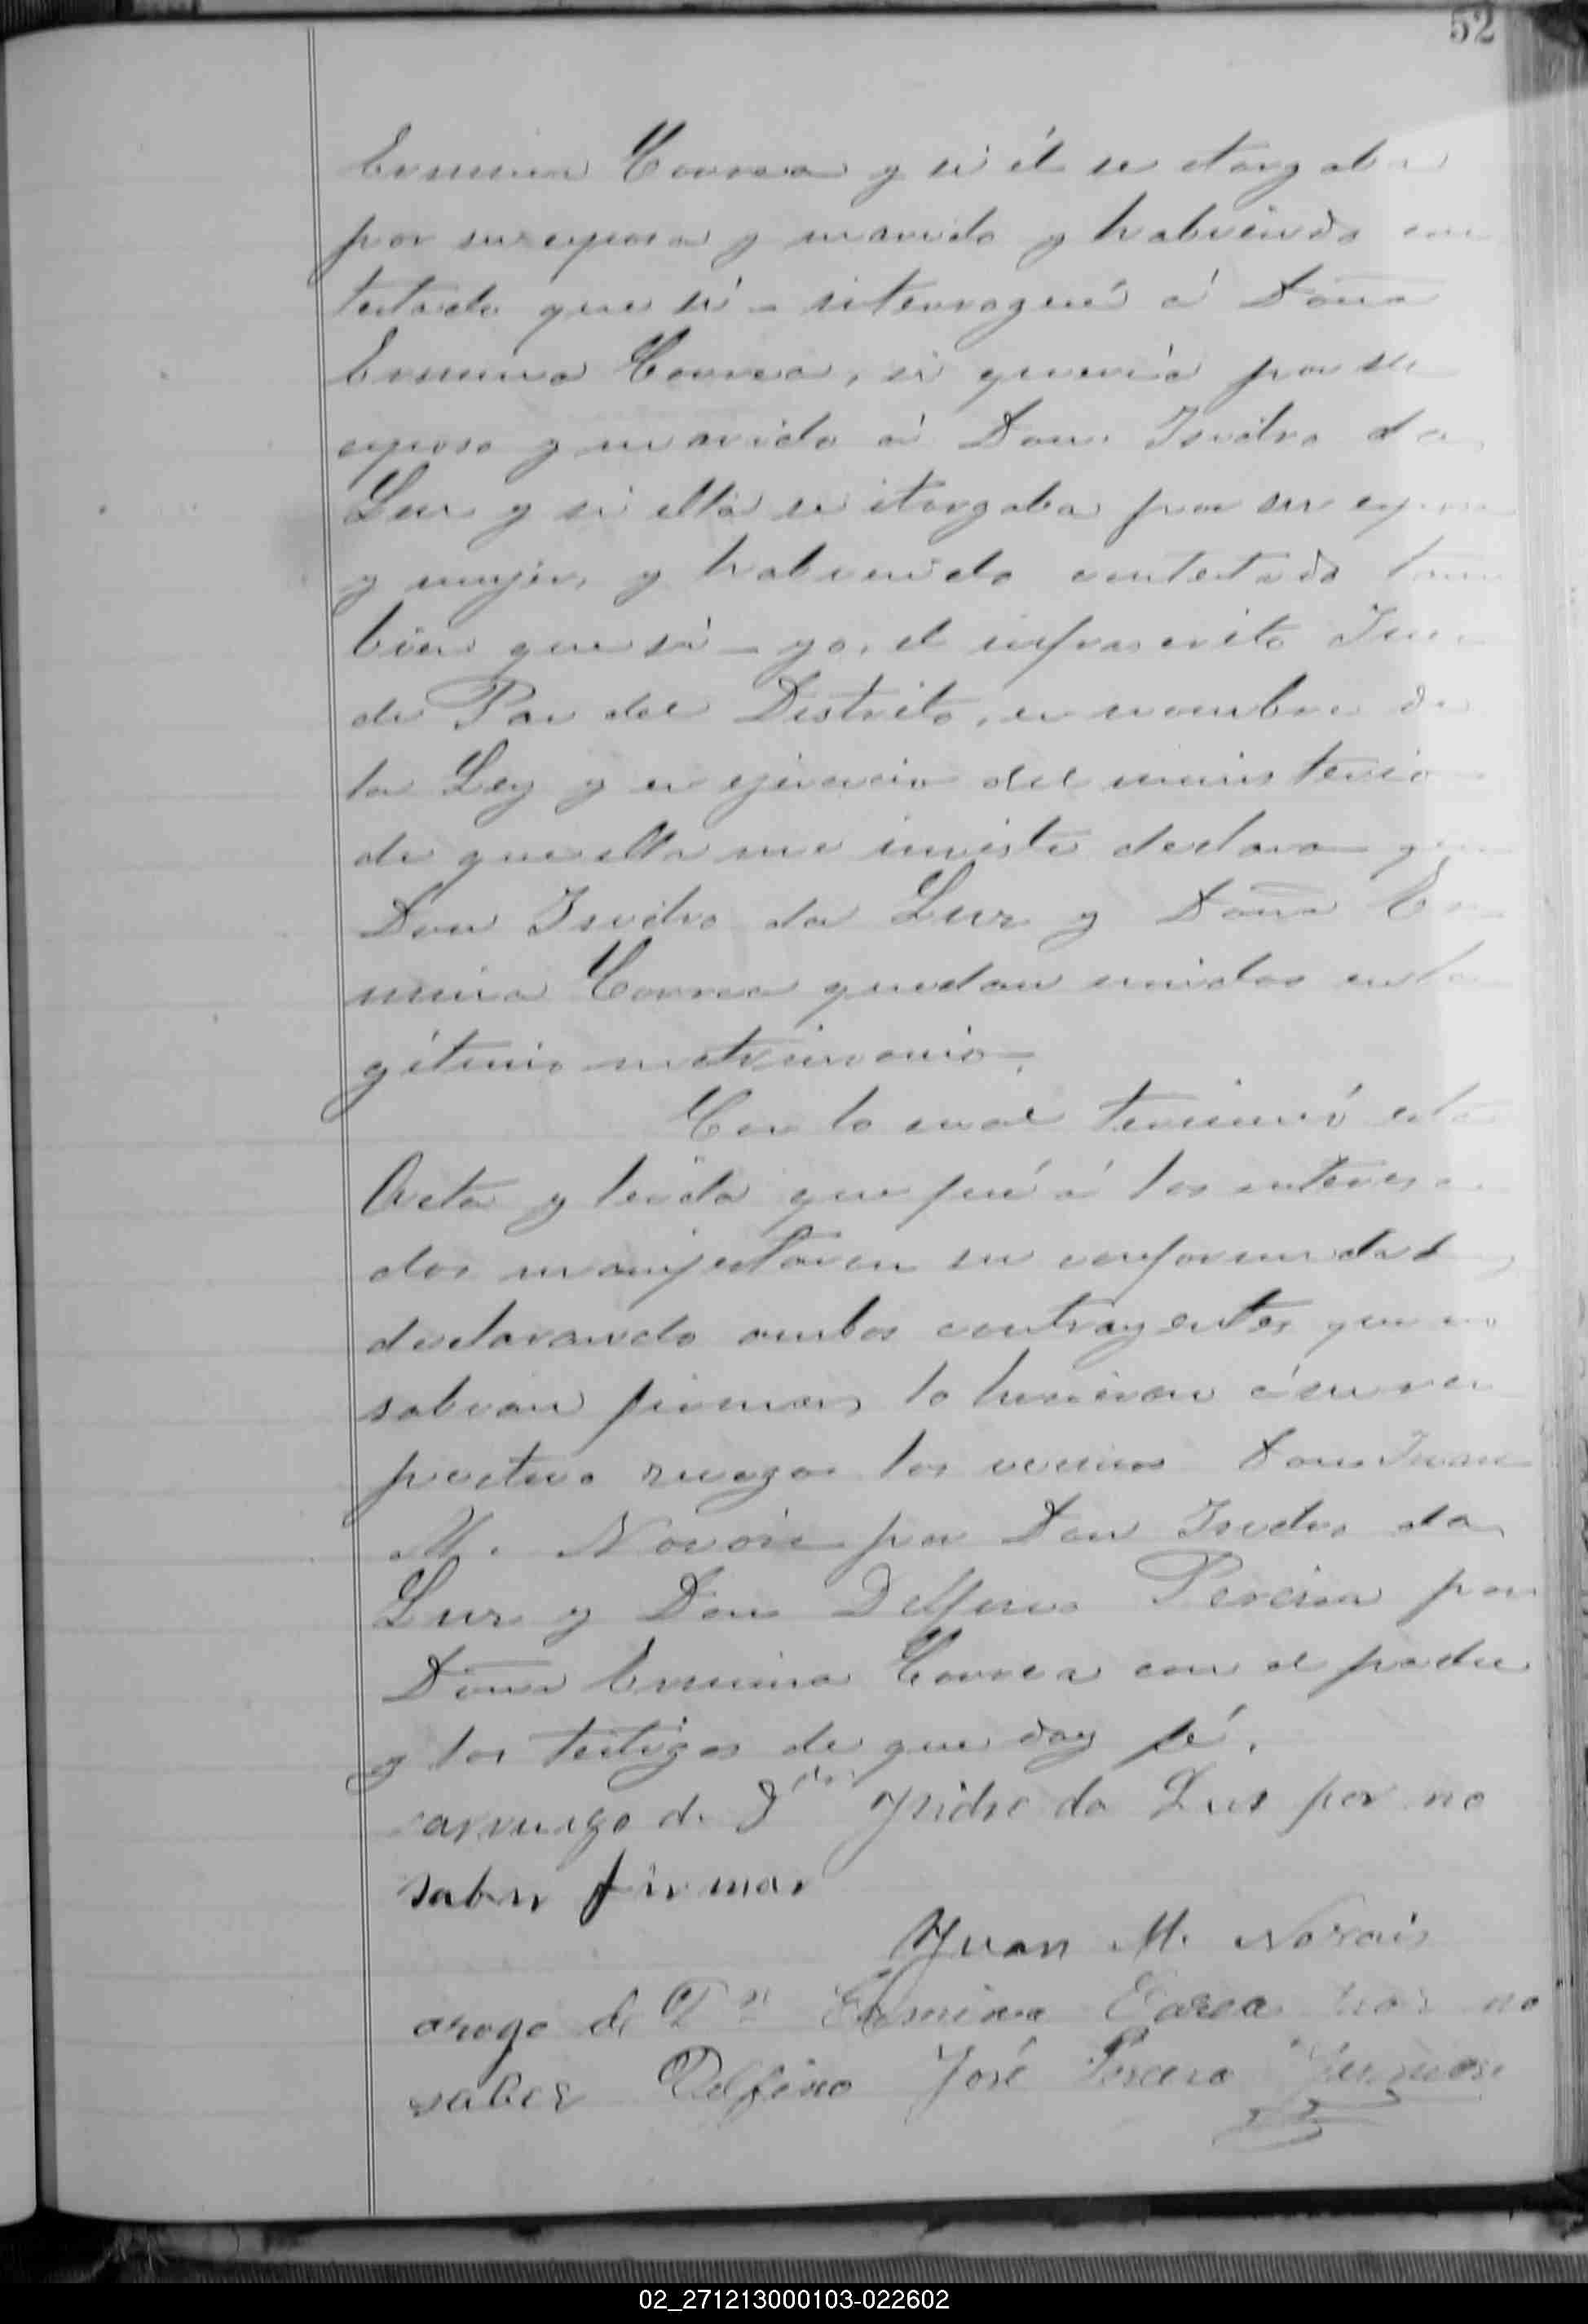 52
Ermina Correa y si él se otorgaba
por su esposo y marido y habiendo con
testado que sí – interrogué á Doña
Ermina Correa, si quería por su
esposo y marido á Don Isidro da
Luz y si ella se otorgaba por su esposa
y mujer, y habiendo contestado tam
bien que sí – yo, el infrascrito Juez
de Paz del Distrito, en nombre de
la Ley y en ejercicio del ministerio
de que ella me inviste declaro que
Don Isidro da Luz y Doña Er
mina Correa quedan unidos en le
gítimo matrimonio.
Con lo cual terminó esta
Acta y leída que fué á los interesa
dos manifestaron su conformidad,
declarando ambos contrayentes que no
sabian firmar, lo hicieron á su res
pectivo ruego los vecinos Don Juan
M. por Don Isidro da
Luz y Don Delfino Pereira por
Doña Ermina Correa con el padre
y los testigos de que doy fé.
de Isidro da Luz por no
saber firmar
Juan M.
arogo de Ermina Corea por no
saber Delfino José
02_271213000103-022602